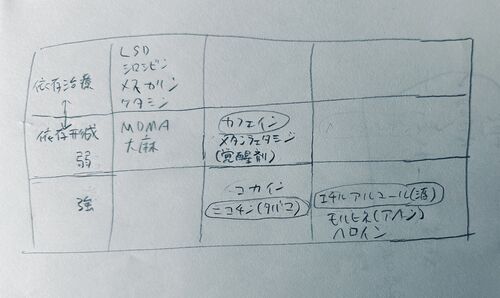 依存治療
LSD
シロシビン
メスカリン
ケタミン
依存形成
弱
MDMA
大麻
カフェイン
メタンフェタミン
(覚醒剤)
強
コカイン
ニコチン(タバコ)
エチルアルコール(酒)
モルヒネ(アヘン)
ヘロイン